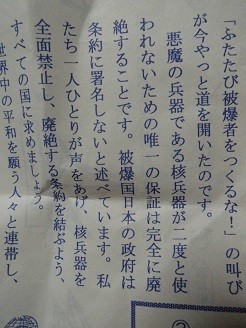 「ふたたび被爆者をつくるな！」の叫び
が今やっと道を開いたのです。
悪魔の兵器である核兵器が二度と使
われないための唯一の保証は完全に廃
絶することです。被爆国日本の政府は
条約に署名しないと述べています。私
たち一人ひとりが声をあげ、核兵器を
全面禁止し、廃絶する条約を結ぶよう、
すべての国に求めましょう。
世界中の平和を願う人々と連帯し、